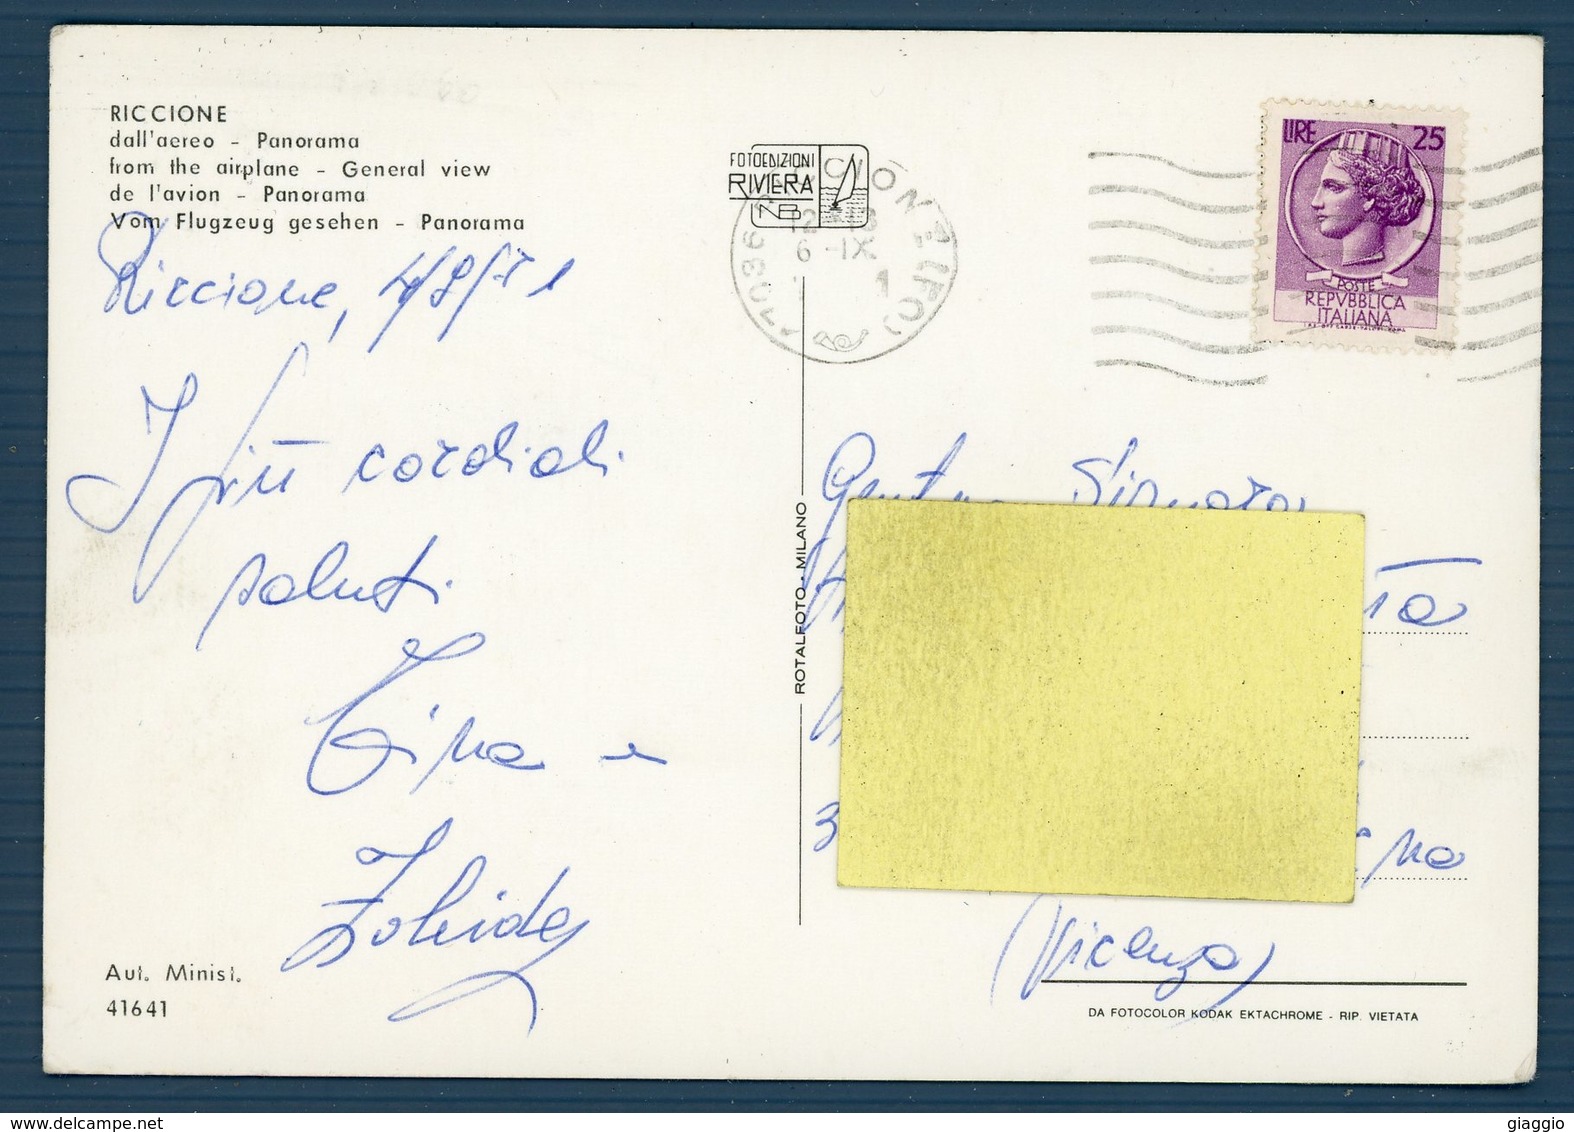 RICCIONE
dall'aereo - Panorama
from the airplane - General view
de l'avion - Panorama
Vom Flugzeug gesehen - Panorama
Riccione, 4/9/71
I più cordiali
saluti
Tina e
Zobeide
Aut. Minist.
41641
FOTOEDIZIONI
RIVIERA
NB
RICCIONE (FO)
47036
12-18
6-IX
1
LIRE 25
POSTE
REPVBBLICA
ITALIANA
ROTALFOTO - MILANO
Gent.ma Signora
3
(Vicenza)
DA FOTOCOLOR KODAK EKTACHROME - RIP. VIETATA
giaggio
www.delcampe.net